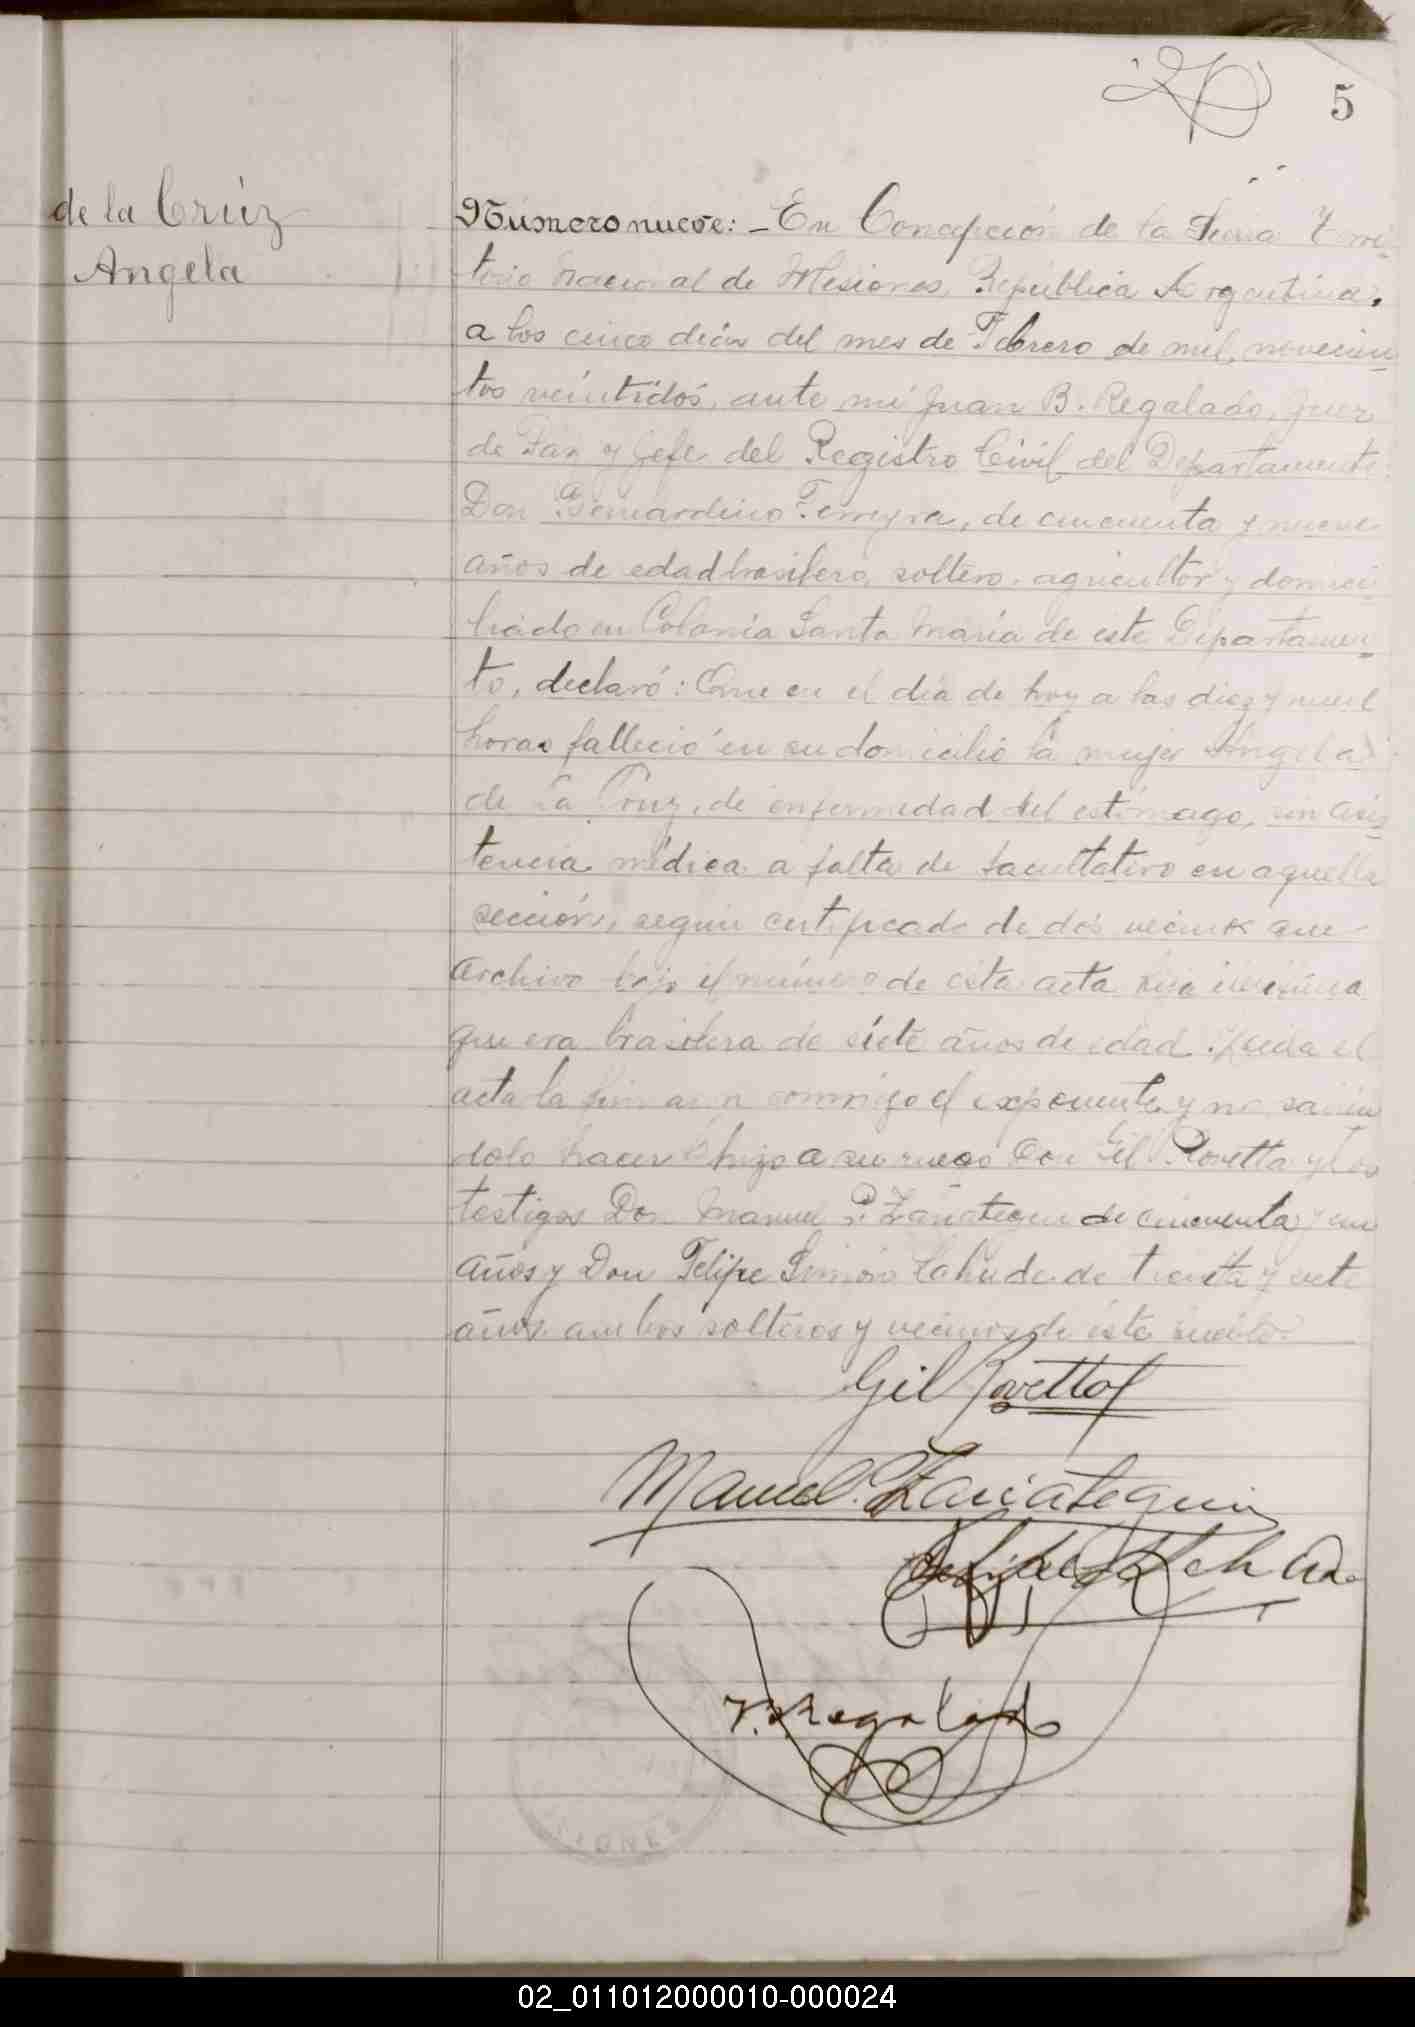 5
de la Crúz
Angela
Número nueve: - En Concepción de la Sierra Terri-
torio Nacional de Misiones, República Argentina,
a los cinco días del mes de Febrero de mil novecien-
tos veintidós, ante mí Juan B. Regalado, Juez
de Paz y Jefe del Registro Civil del Departamento:
Don Bernardino Ferreyra, de cincuenta y nueve
años de edad brasilero, soltero, agricultor y domici-
liado en Colonia Santa María de este Departamen-
to, declaró: Que en el día de hoy a las diez y nueve
horas falleció en su domicilio la mujer Angela
de la Cruz, de enfermedad del estómago, sin asis-
tencia médica a falta de facultativo en aquella
sección, según certificado de dos vecinos que
archivo bajo el número de esta acta
que era brasilera de siete años de edad. Leida el
acta la firmaron conmigo el exponente y no sabien
dolo hacer lo hizo a su ruego Don Gil Rovetta y los
testigos Don Manuel P. Zariategui de cincuenta y un
años y Don Felipe Simón Cahuda de treinta y siete
años ambos solteros y vecinos de este pueblo.
Gil Rovetta
Manuel P. Zariategui
J. B. Regalado
02_011012000010-000024